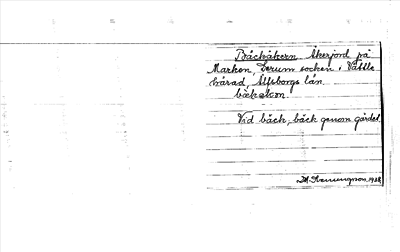 Bäckåkern Åkerjord på
Marken, Lerum socken, Vättle
härad Älfsborgs län.
bäkakən.
Vid bäck, bäck genom gärdet
1928